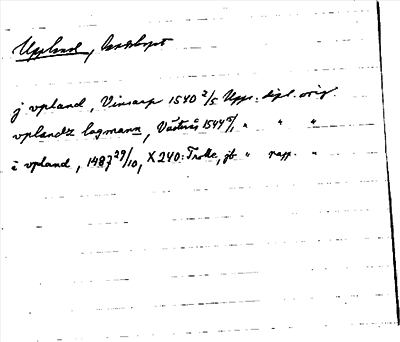 Uppland, Landskapet
j vpland, Vinsarp 1540 2/5 Upps. dipl. orig.
vplandz lagmann, Västerås 1544 15/1, " " "
i vpland, 1487 29/10, X 240: Trolle, jb " papp. "